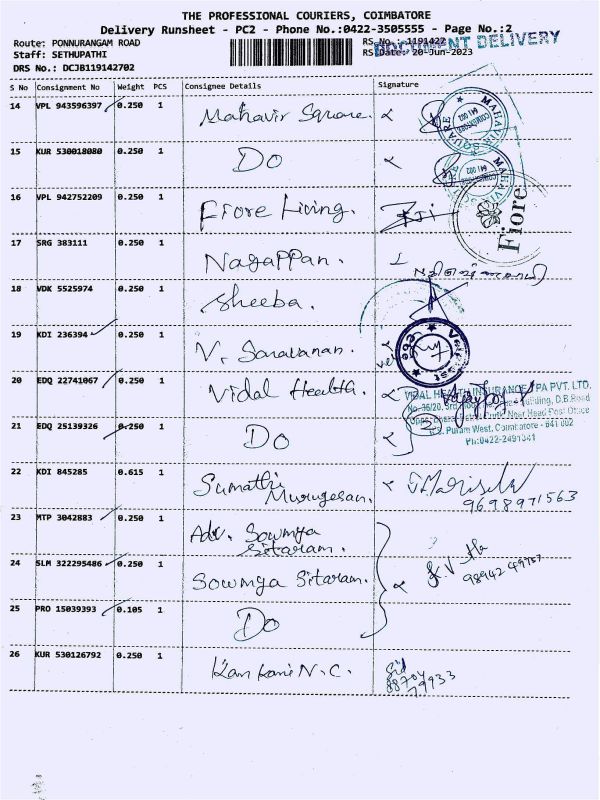 THE PROFESSIONAL COURIERS, COIMBATORE
Delivery Runsheet - PC2 - Phone No.:0422-3505555 - Page No.:2
Route: PONNURANGAM ROAD
Staff: SETHUPATHI
DRS No.: DCJB119142702
RS No.: 1191427
RS Date: 20-Jun-2023
DOCUMENT DELIVERY
S No Consignment No Weight PCS Consignee Details Signature
14 VPL 943596397 0.250 1 Mahavir Square.
MAHAVIR SQUARE
COIMBATORE
641 002
15 KUR 530018080 0.250 1 Do
MAHAVIR
641 002
16 VPL 942752209 0.250 1 Fiore Living.
Fiore
17 SRG 383111 0.250 1 Nagappan.
18 VDK 5525974 0.250 1 Sheeba.
19 KDI 236394 0.250 1 V. Saravanan.
20 EDQ 22741067 0.250 1 Vidal Health.
VIDAL HEALTH INSURANCE TPA PVT. LTD.
No.36/20, 3rd Building, D.B.Road
Near Head Post Office
R.S. Puram West, Coimbatore - 641 002
Ph:0422-2491341
21 EDQ 25139326 0.250 1 Do
2
22 KDI 845285 0.615 1 Sumathi
Murugesan.
9698971563
23 MTP 3042883 0.250 1 Adv. Sowmya
Sitaram.
24 SLM 322295486 0.250 1 Sowmya Sitaram.
25 PRO 15039393 0.105 1 Do
26 KUR 530126792 0.250 1 Kankani N.C.
88704
79933